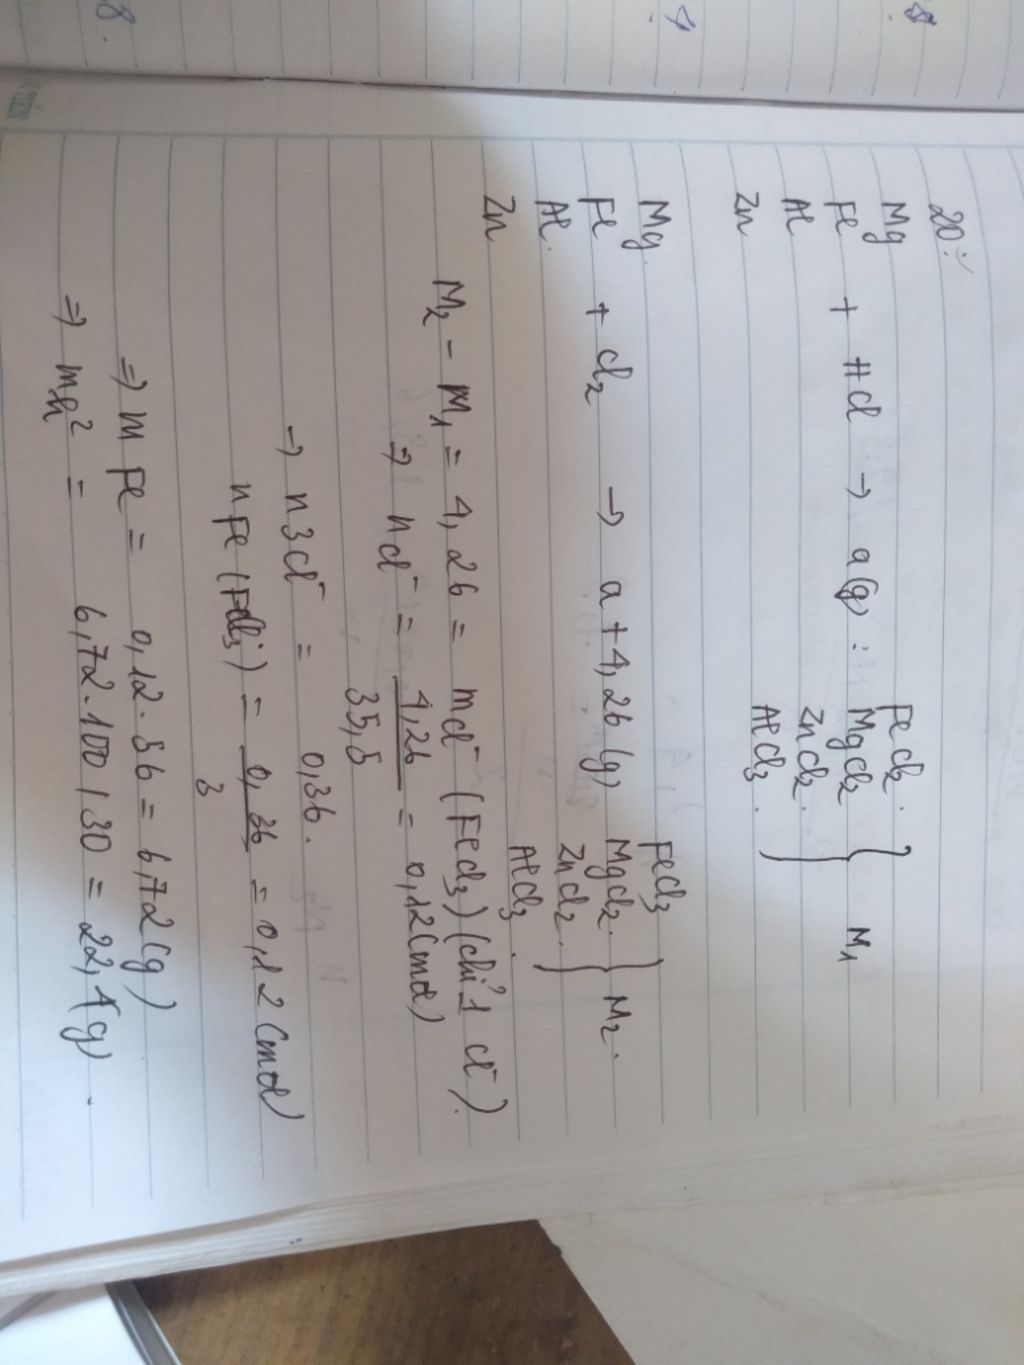 20:
Mg
Fe + HCl → a(g) :
Al
Zn
FeCl2.
MgCl2
ZnCl2.
AlCl3.
} M1
Mg.
Fe + Cl2 → a + 4,26 (g)
Al.
Zn
FeCl3
MgCl2.
ZnCl2.
AlCl3.
} M2.
M2 - M1 = 4,26 = mCl⁻ (FeCl3) (chỉ 1 Cl⁻).
⇒ nCl⁻ = 4,26 / 35,5 = 0,12 (mol)
→ n3Cl⁻ = 0,36.
nFe (FeCl3) = 0,36 / 3 = 0,12 (mol)
⇒ mFe = 0,12.56 = 6,72 (g)
⇒ = 6,72.100 / 30 = 22,4 (g).